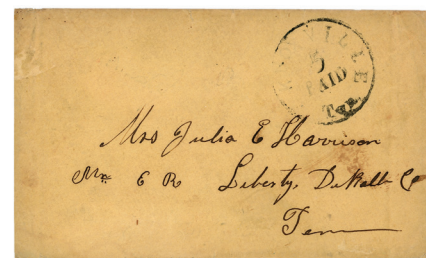 VILLE
5
PAID
Ten.
Mrs Julia E Harrison
E R Liberty, DeKalb Co
Tenn